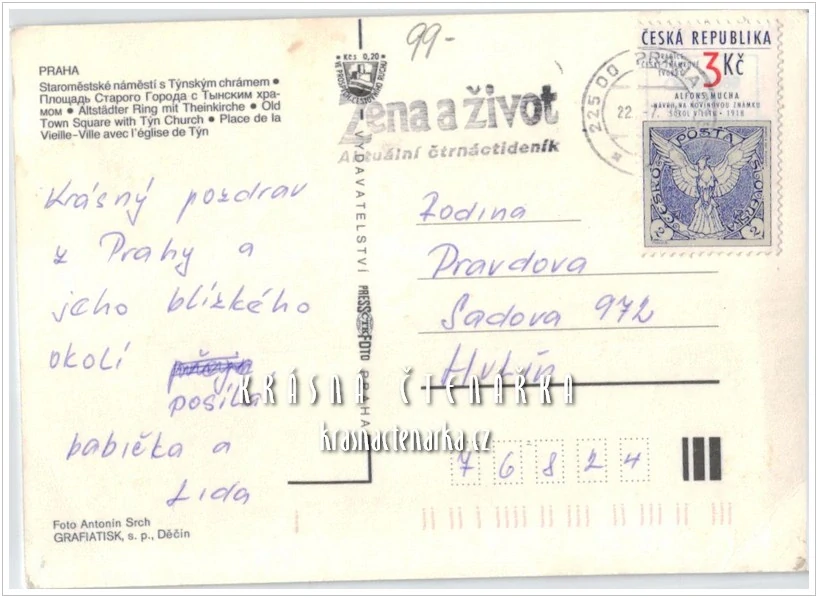 99-
PRAHA
Staroměstské náměstí s Týnským chrámem •
Площадь Старого Города с Тынским хра-
мом • Altstädter Ring mit Theinkirche • Old
Town Square with Týn Church • Place de la
Vieille-Ville avec l'église de Týn
Kčs 0,20
Žena a život
Aktuální čtrnáctideník
225 00 PRAHA
22. -7.
ČESKÁ REPUBLIKA
3 Kč
ALFONS MUCHA
NÁVRH NA NOVINOVOU ZNÁMKU
SOKOL V LETU - 1918
POŠTA
ČESKO SLOVENSKÁ
2 2
Krásný pozdrav
z Prahy a
jeho blízkého
okolí
posílá
babička a
Lida
VYDAVATELSTVÍ PRESSFOTO PRAHA
Rodina
Pravdova
Sadova 972
Hulín
76824
KRÁSNÁ ČTENÁŘKA
krasnactenarka.cz
Foto Antonín Srch
GRAFIATISK, s. p., Děčín